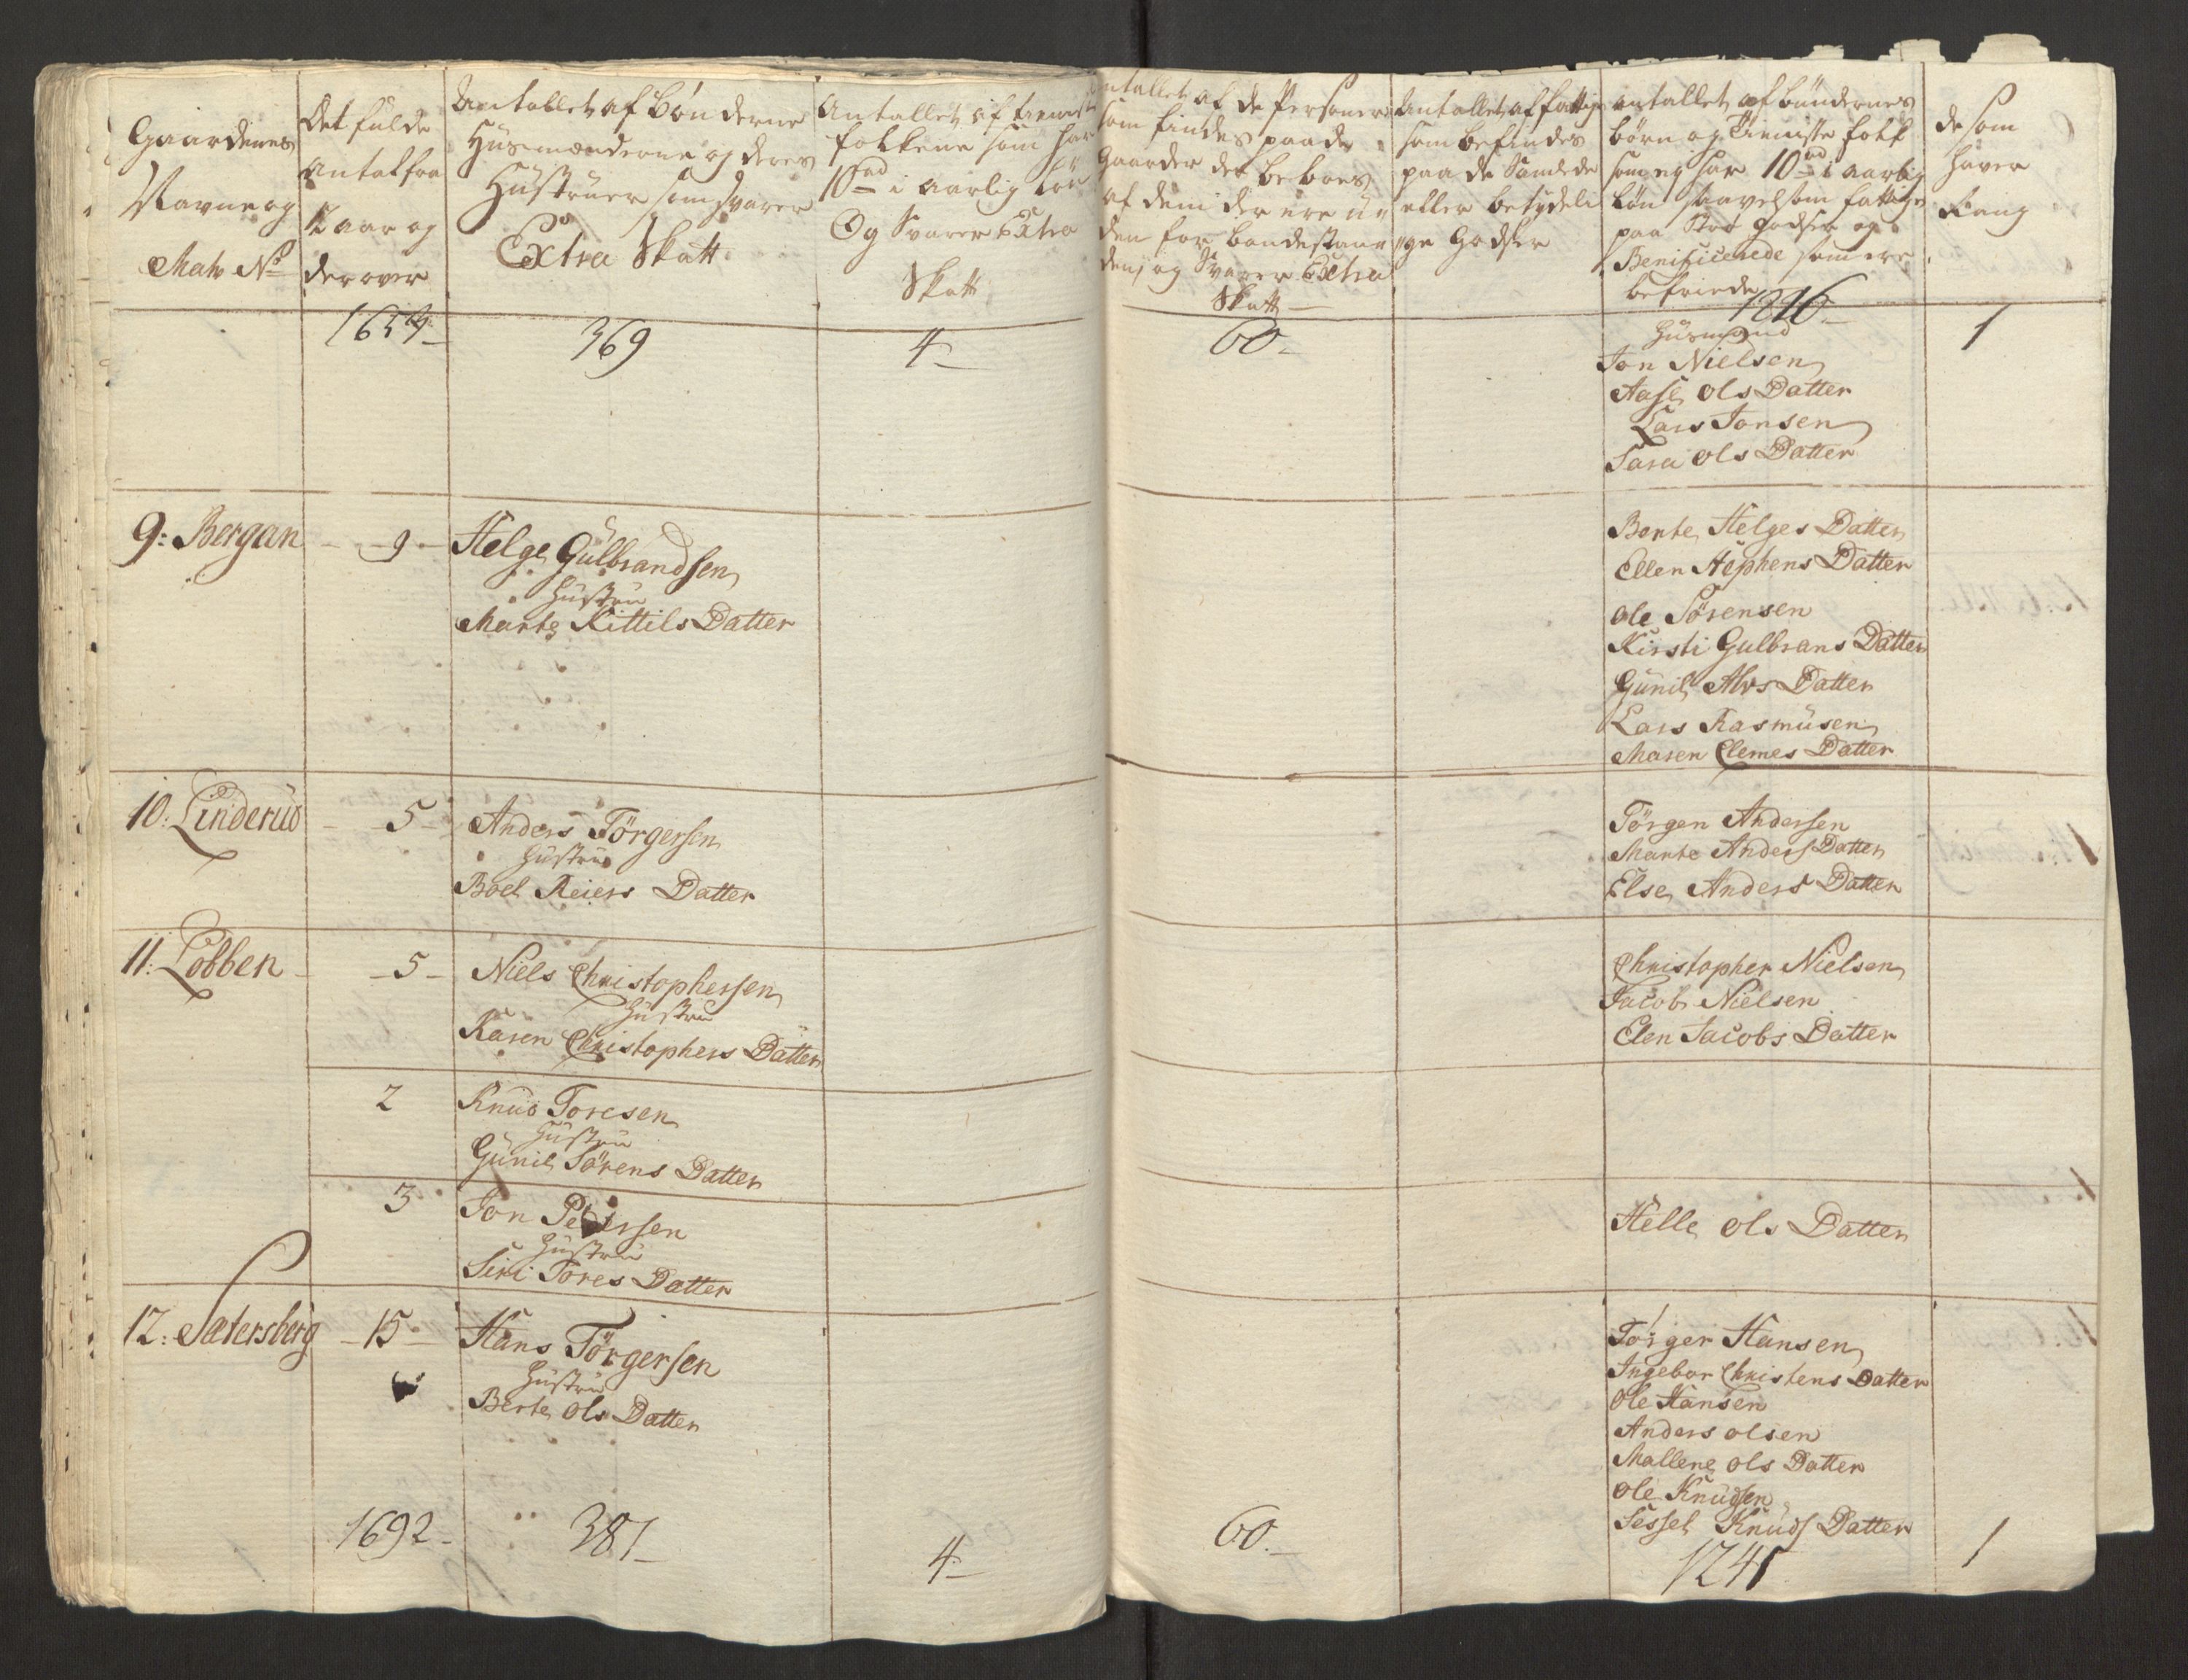 Gaardenes
Navne og
Matr No
Det fulde
Antal fra
12 aar og
derover
Antallet af bønderne
Husmænderne og deres
Hustruer som svarer
Extra Skatt
Antallet af tieniste
folkene som har
10rd i aarlig løn
Og Svarer Extra
Skatt
Antallet af de Personer
som findes paa de
Gaarder der beboes
af dem der ere u-
den for bondestan-
den, og Svarer Extra
Skatt
Antallet af fattige
som befindes
paa de Samlede
eller betydeli-
ge Godser
antallet af bøndernes
børn og Tieniste folk
som ej har 10rd i aarlig
løn saavelsom fattige
paa Stor Godser og
Benificerede som ere
befriede
de som
haver
Rang
369
4
60
1216
1
Husmand
Jon Nielsen
Aase Ols Datter
Lars Jonsen
Sara Ols Datter
9: Bergan
9
Helge Gulbrandsen
Hustru
Marte Kittils Datter
Berte Helges Datter
Ellen Stephens Datter
Ole Sørensen
Kirsti Gulbrans Datter
Gunil Alvs Datter
Lars Rasmusen
Maren Clemes Datter
10: Linderud
5
Anders Törgersen
Hustru
Boel Reiers Datter
Törgen Andersen
Marte Anders Datter
Else Anders Datter
11: Lobben
5
Niels Christophersen
Hustru
Karen Christophers Datter
Christopher Nielsen
Jacob Nielsen
Elen Jacobs Datter
2
Knud Toresen
Hustru
Gunil Sörens Datter
3
Jon Petersen
Hustru
Siri Tores Datter
Helle Ols Datter
12: Sætersberg
15
Hans Törgersen
Hustru
Berte Ols Datter
Törger Hansen
Ingebor Christens Datter
Ole Hansen
Anders Olsen
Mallene Ols Datter
Ole Knudsen
Sessel Knuds Datter
1692
381
4
60
1241
1